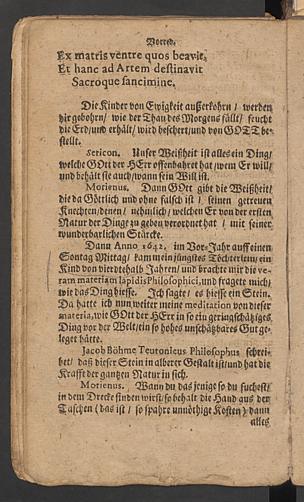 Vorred.
Ex matris ventre quos beavit,
Et hanc ad Artem destinavit
Sacroque sancimine.
Die Kinder von Ewigkeit außerkohrn / werden
hir gebohrn/ wie der Thau des Morgens fällt/ feucht
die Erd/und erhält/ wird beschert/und von GOTT be-
stellt.
Sericon. Unser Weißheit ist alles ein Ding/
welche GOtt der HErr offenbahret hat /wem Er will/
und behält sie auch/wann sein Will ist.
Morienus. Dann GOtt gibt die Weißheit/
die da Göttlich und ohne falsch ist / seinen getreuen
Knechten/denen / nehmlich/ welchen Er von der ersten
Natur der Dinge zu geben verordnet hat / mit seiner
wunderbarlichen Stärcke.
Dann Anno 1642. im Vor-Jahr auff einen
Sontag Mittag/ kam mein jüngstes Töchterlein/ein
Kind von vierdtehalb Jahren/ und brachte mir die ve-
ram materiam lapidis Philosophici, und fragete mich/
wie das Ding hiesse. Ich sagte / es hiesse ein Stein.
Da hatte ich nun weiter meine meditation von dieser
materia, wie GOtt der HErr in so ein geringschätziges
Ding vor der Welt/ein so hohes unschätzbares Gut ge-
leget hätte.
Jacob Böhme Teutonicus Philosophus schrei-
bet/ daß dieser Stein in alberer Gestalt ist/und hat die
Krafft der gantzen Natur in sich.
Morienus. Wann du das jenige so du suchest/
in dem Drecke finden wirst/so behalt die Hand aus der
Taschen (das ist / so spahre unnöthige Kosten) dann
alles